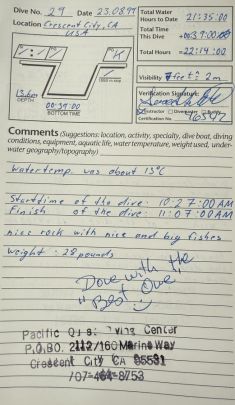 Dive No. 29 Date 23.08.97
Location Crescent City, CA
USA
Total Water
Hours to Date 21:35:00
Total Time
This Dive +00:39:00.00
Total Hours =22:14:00
Visibility 7feet: 2m
Verification Signature:
Instructor Divemaster
Certification No. 
13,6m
DEPTH
00:39:00
BOTTOM TIME
Comments (Suggestions: location, activity, specialty, dive boat, diving
conditions, equipment, aquatic life, water temperature, weight used, under-
water geography/topography)
Watertemp. was about 13°C
Starttime of the dive: 10:27:00AM
Finish of the dive: 11:07:00AM
nice rock with nice and big fishes
weight: 28 pounds
Dove with the
"Best One"
Pacific Center
P.O.BO. 2112/160 Marine Way
Crescent City CA 95531
707-464-8753